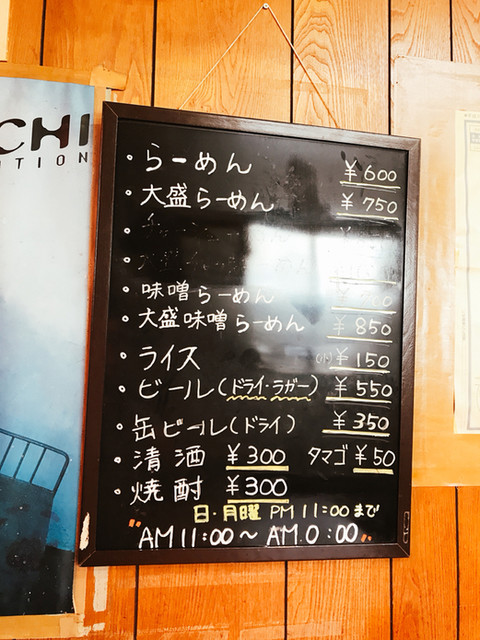 CHI
ITION
・らーめん ¥600
・大盛らーめん ¥750
・味噌らーめん
・大盛味噌らーめん ¥850
・ライス (小)¥150
・ビール(ドライ・ラガー) ¥550
・缶ビール(ドライ) ¥350
・清酒 ¥300 タマゴ ¥50
・焼酎 ¥300
日・月曜 PM11:00まで
"AM11:00～AM0:00"